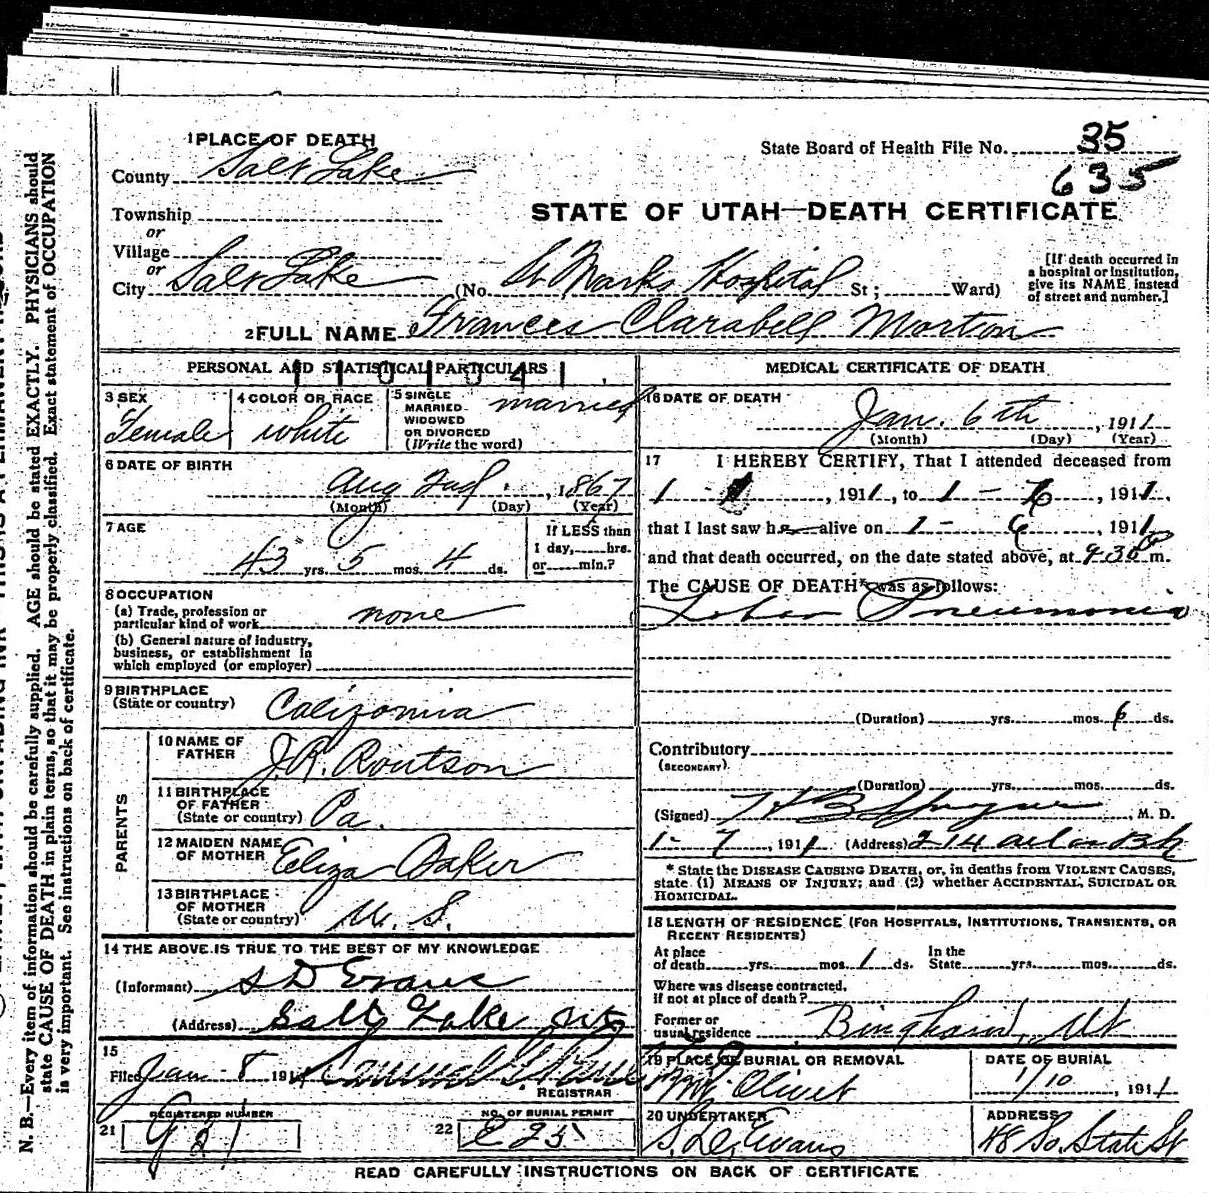 1 PLACE OF DEATH
State Board of Health File No. 35
635
County Salt Lake
STATE OF UTAH—DEATH CERTIFICATE
Township
or
Village
or
City Salt Lake (No. St Marks Hospital St; Ward)
[If death occurred in a hospital or institution, give its NAME instead of street and number.]
2 FULL NAME Frances Clarabell Morton
PERSONAL AND STATISTICAL PARTICULARS
3 SEX
Female
4 COLOR OR RACE
white
5 SINGLE MARRIED WIDOWED OR DIVORCED (Write the word)
married
6 DATE OF BIRTH
Aug 2nd, 1867
(Month) (Day) (Year)
7 AGE
43 yrs. 5 mos. 4 ds.
If LESS than 1 day, hrs. or min.?
8 OCCUPATION
(a) Trade, profession or particular kind of work none
(b) General nature of industry, business, or establishment in which employed (or employer)
9 BIRTHPLACE
(State or country) California
PARENTS
10 NAME OF FATHER J.R. Routson
11 BIRTHPLACE OF FATHER (State or country) Pa.
12 MAIDEN NAME OF MOTHER Eliza Baker
13 BIRTHPLACE OF MOTHER (State or country) U. S.
14 THE ABOVE IS TRUE TO THE BEST OF MY KNOWLEDGE
(Informant) S D Evans
(Address) Salt Lake
15
Filed Jan - 8 191
REGISTRAR
21 REGISTERED NUMBER
22 NO. OF BURIAL PERMIT
MEDICAL CERTIFICATE OF DEATH
16 DATE OF DEATH
Jan. 6th, 1911
(Month) (Day) (Year)
17 I HEREBY CERTIFY, That I attended deceased from
1 - , 1911, to 1 - 6, 1911,
that I last saw her alive on 1 - 6, 1911
and that death occurred, on the date stated above, at 9-30 m.
The CAUSE OF DEATH* was as follows:
Lobar Pneumonia
(Duration) yrs. mos. 6 ds.
Contributory
(SECONDARY)
(Duration) yrs. mos. ds.
(Signed) , M. D.
1 - 7, 1911 (Address) 214
* State the DISEASE CAUSING DEATH, or, in deaths from VIOLENT CAUSES, state (1) MEANS OF INJURY; and (2) whether ACCIDENTAL, SUICIDAL OR HOMICIDAL.
18 LENGTH OF RESIDENCE (FOR HOSPITALS, INSTITUTIONS, TRANSIENTS, OR RECENT RESIDENTS)
At place of death yrs. mos. 1 ds. In the State yrs. mos. ds.
Where was disease contracted, if not at place of death?
Former or usual residence Bingham, Ut
19 PLACE OF BURIAL OR REMOVAL
Mt Olivet
DATE OF BURIAL
1/10, 1911
20 UNDERTAKER
S. D. Evans
ADDRESS
48 So. State St
READ CAREFULLY INSTRUCTIONS ON BACK OF CERTIFICATE
N. B.—Every item of information should be carefully supplied. AGE should be stated EXACTLY. PHYSICIANS should
state CAUSE OF DEATH in plain terms, so that it may be properly classified. Exact statement of OCCUPATION
is very important. See instructions on back of certificate.